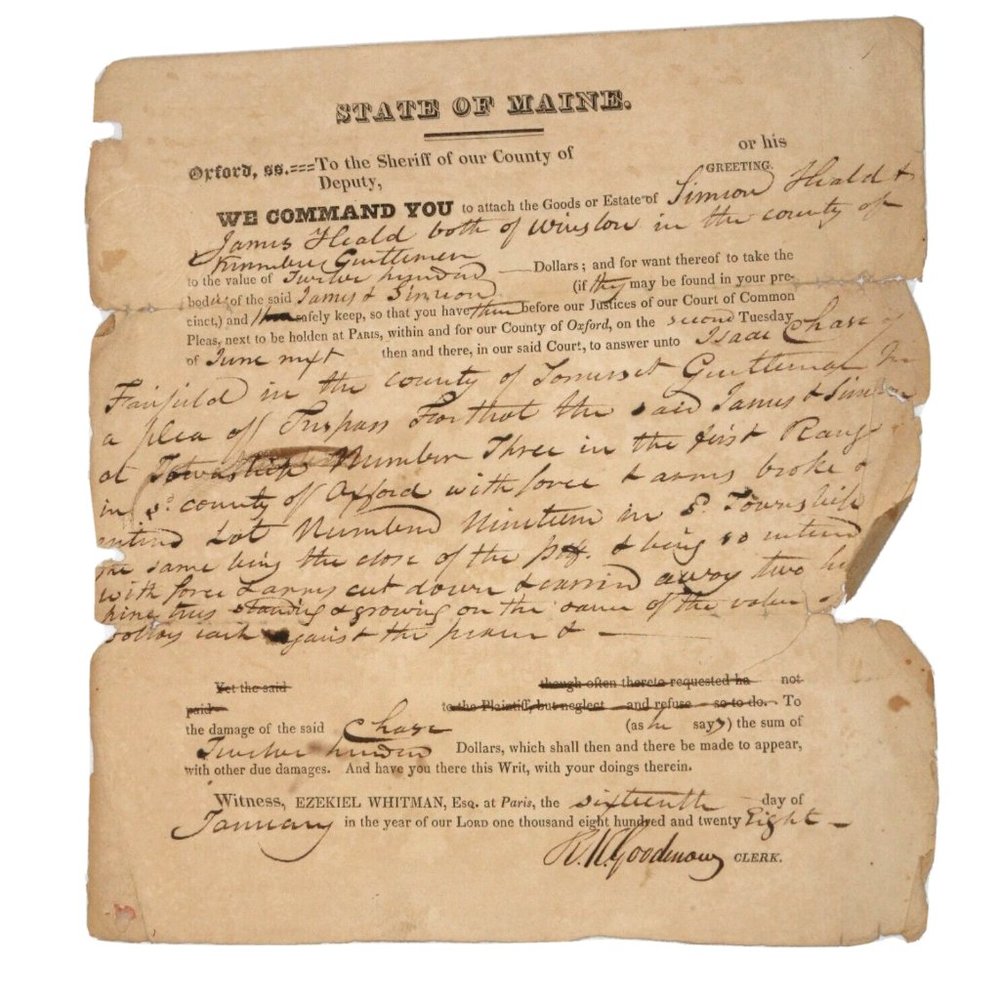 STATE OF MAINE.
Oxford, ss.===To the Sheriff of our County of or his
Deputy, GREETING.
WE COMMAND YOU to attach the Goods or Estate of Simeon Heald &
James Heald both of Winslow in the county of
Gentlemen
to the value of Twelve hundred Dollars; and for want thereof to take the
bodies of the said James & Simeon (if they may be found in your pre-
cinct,) and safely keep, so that you have them before our Justices of our Court of Common
Pleas, next to be holden at PARIS, within and for our County of Oxford, on the second Tuesday
of June next then and there, in our said Court, to answer unto Isaac Chase of
Fairfield in the county of Somerset Gentleman In
a plea of Trespass For that the said James & Simeon
at Township Number Three in the first Range
in sd. county of Oxford with force & arms broke &
entered Lot Numbered Nineteen in sd. Township
the same being the close of the plff. & being so entered
with force & arms cut down & carried away two
pine trees standing & growing on the same of the value of
dollars each against the peace & —
Yet the said though often thereto requested ha not
paid to the Plaintiff, but neglect and refuse so to do. To
the damage of the said Chase (as he says) the sum of
Twelve hundred Dollars, which shall then and there be made to appear,
with other due damages. And have you there this Writ, with your doings therein.
Witness, EZEKIEL WHITMAN, Esq. at Paris, the sixteenth day of
January in the year of our LORD one thousand eight hundred and twenty Eight —
R. K. Goodenow CLERK.